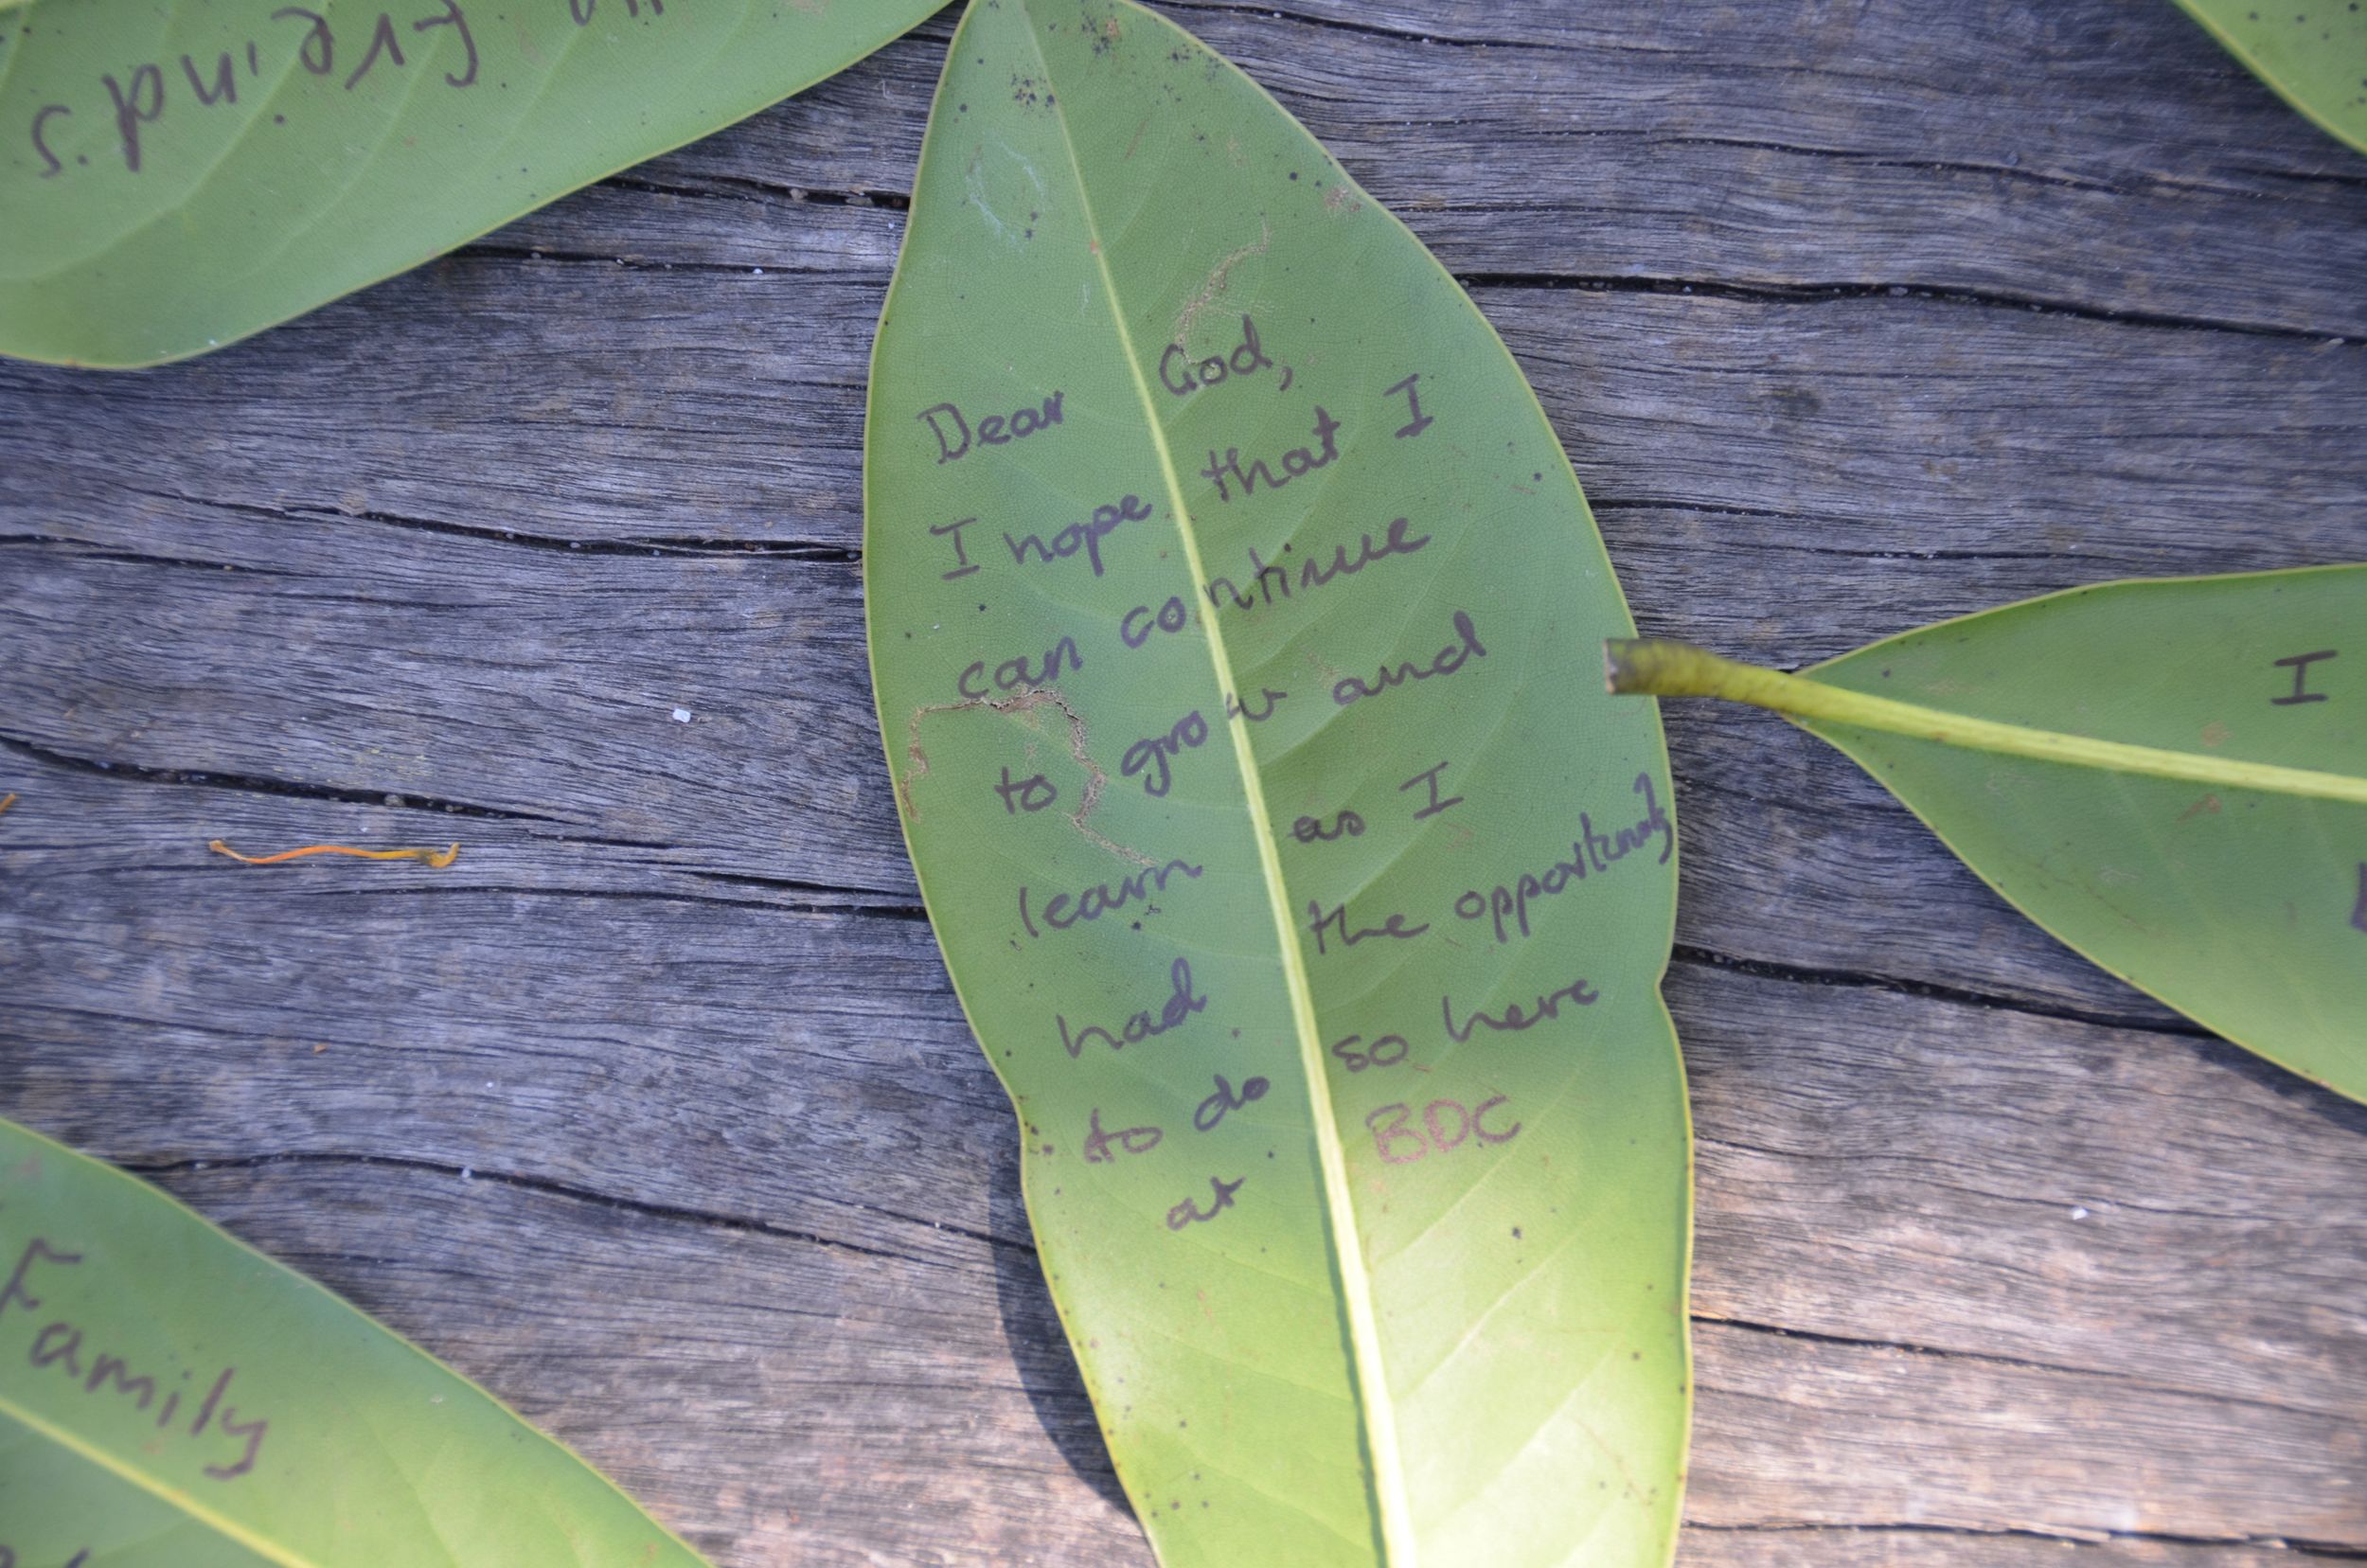 Freinds.
Dear God,
I hope that I
can continue
to grow and
learn as I
had the opportunity
to do so here
at BDC
I
Family